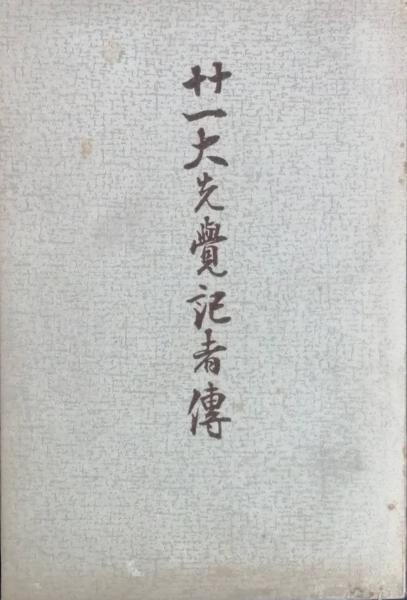 廿一大先覺記者傳